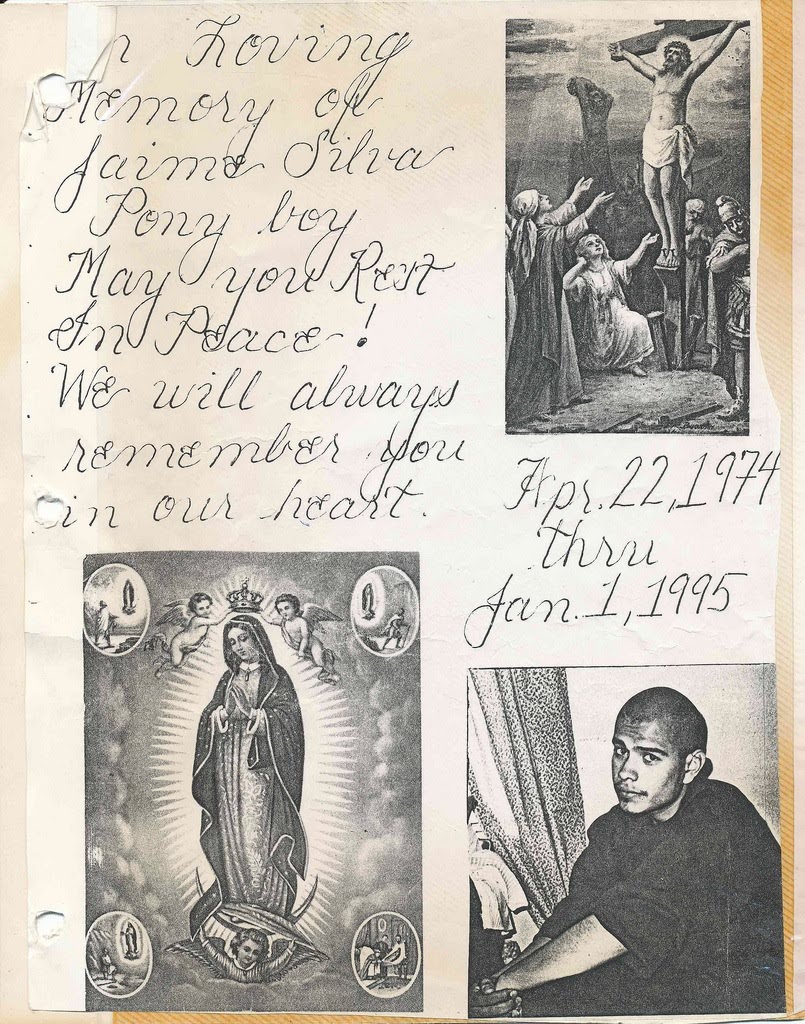 n Loving
Memory of
Jaime Silva
Pony boy
May you Rest
In Peace!
We will always
remember you
in our heart.
Apr. 22, 1974
thru
Jan. 1, 1995